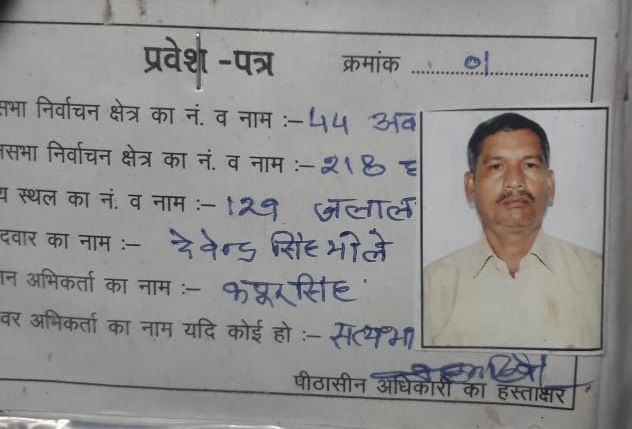 प्रवेश -पत्र क्रमांक 01
सभा निर्वाचन क्षेत्र का नं. व नाम :- 44 अक
सभा निर्वाचन क्षेत्र का नं. व नाम :- 218
स्थल का नं. व नाम :- 129 जलाल
दवार का नाम :- देवेन्द्र सिंह भोले
अभिकर्ता का नाम :- सिंह
अभिकर्ता का नाम यदि कोई हो :- सत्यभा
पीठासीन अधिकारी का हस्ताक्षर